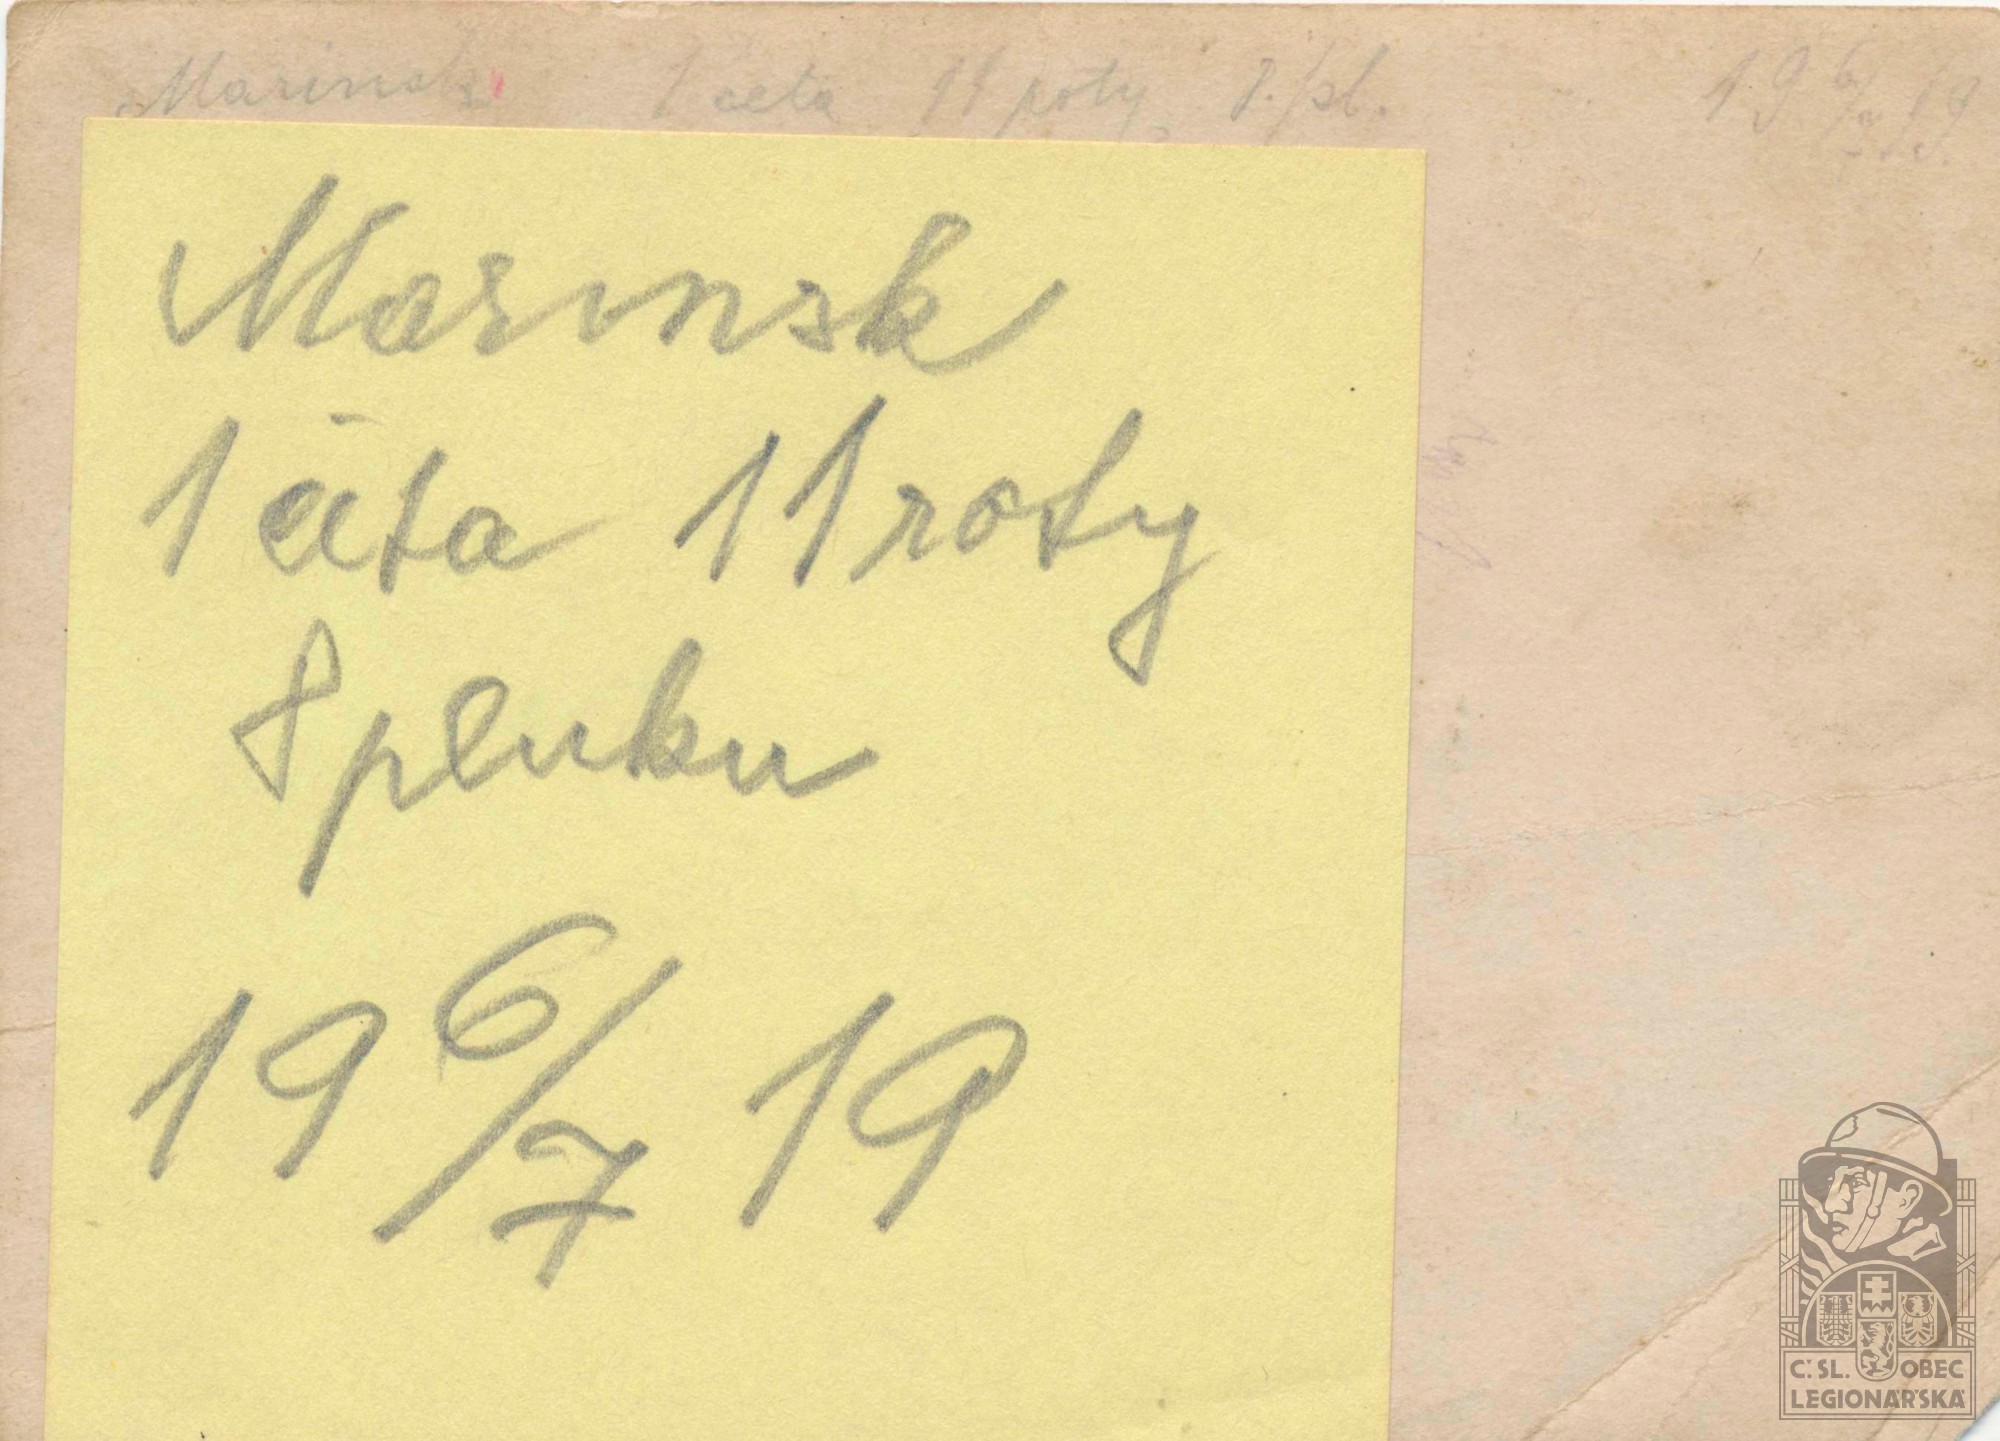 Marinsk 1 četa 11 roty 8. pl. 19 6/7 19
Marinsk
1 četa 11 roty
8 pluku
19 6/7 19
Č. SL. OBEC
LEGIONÁŘSKÁ